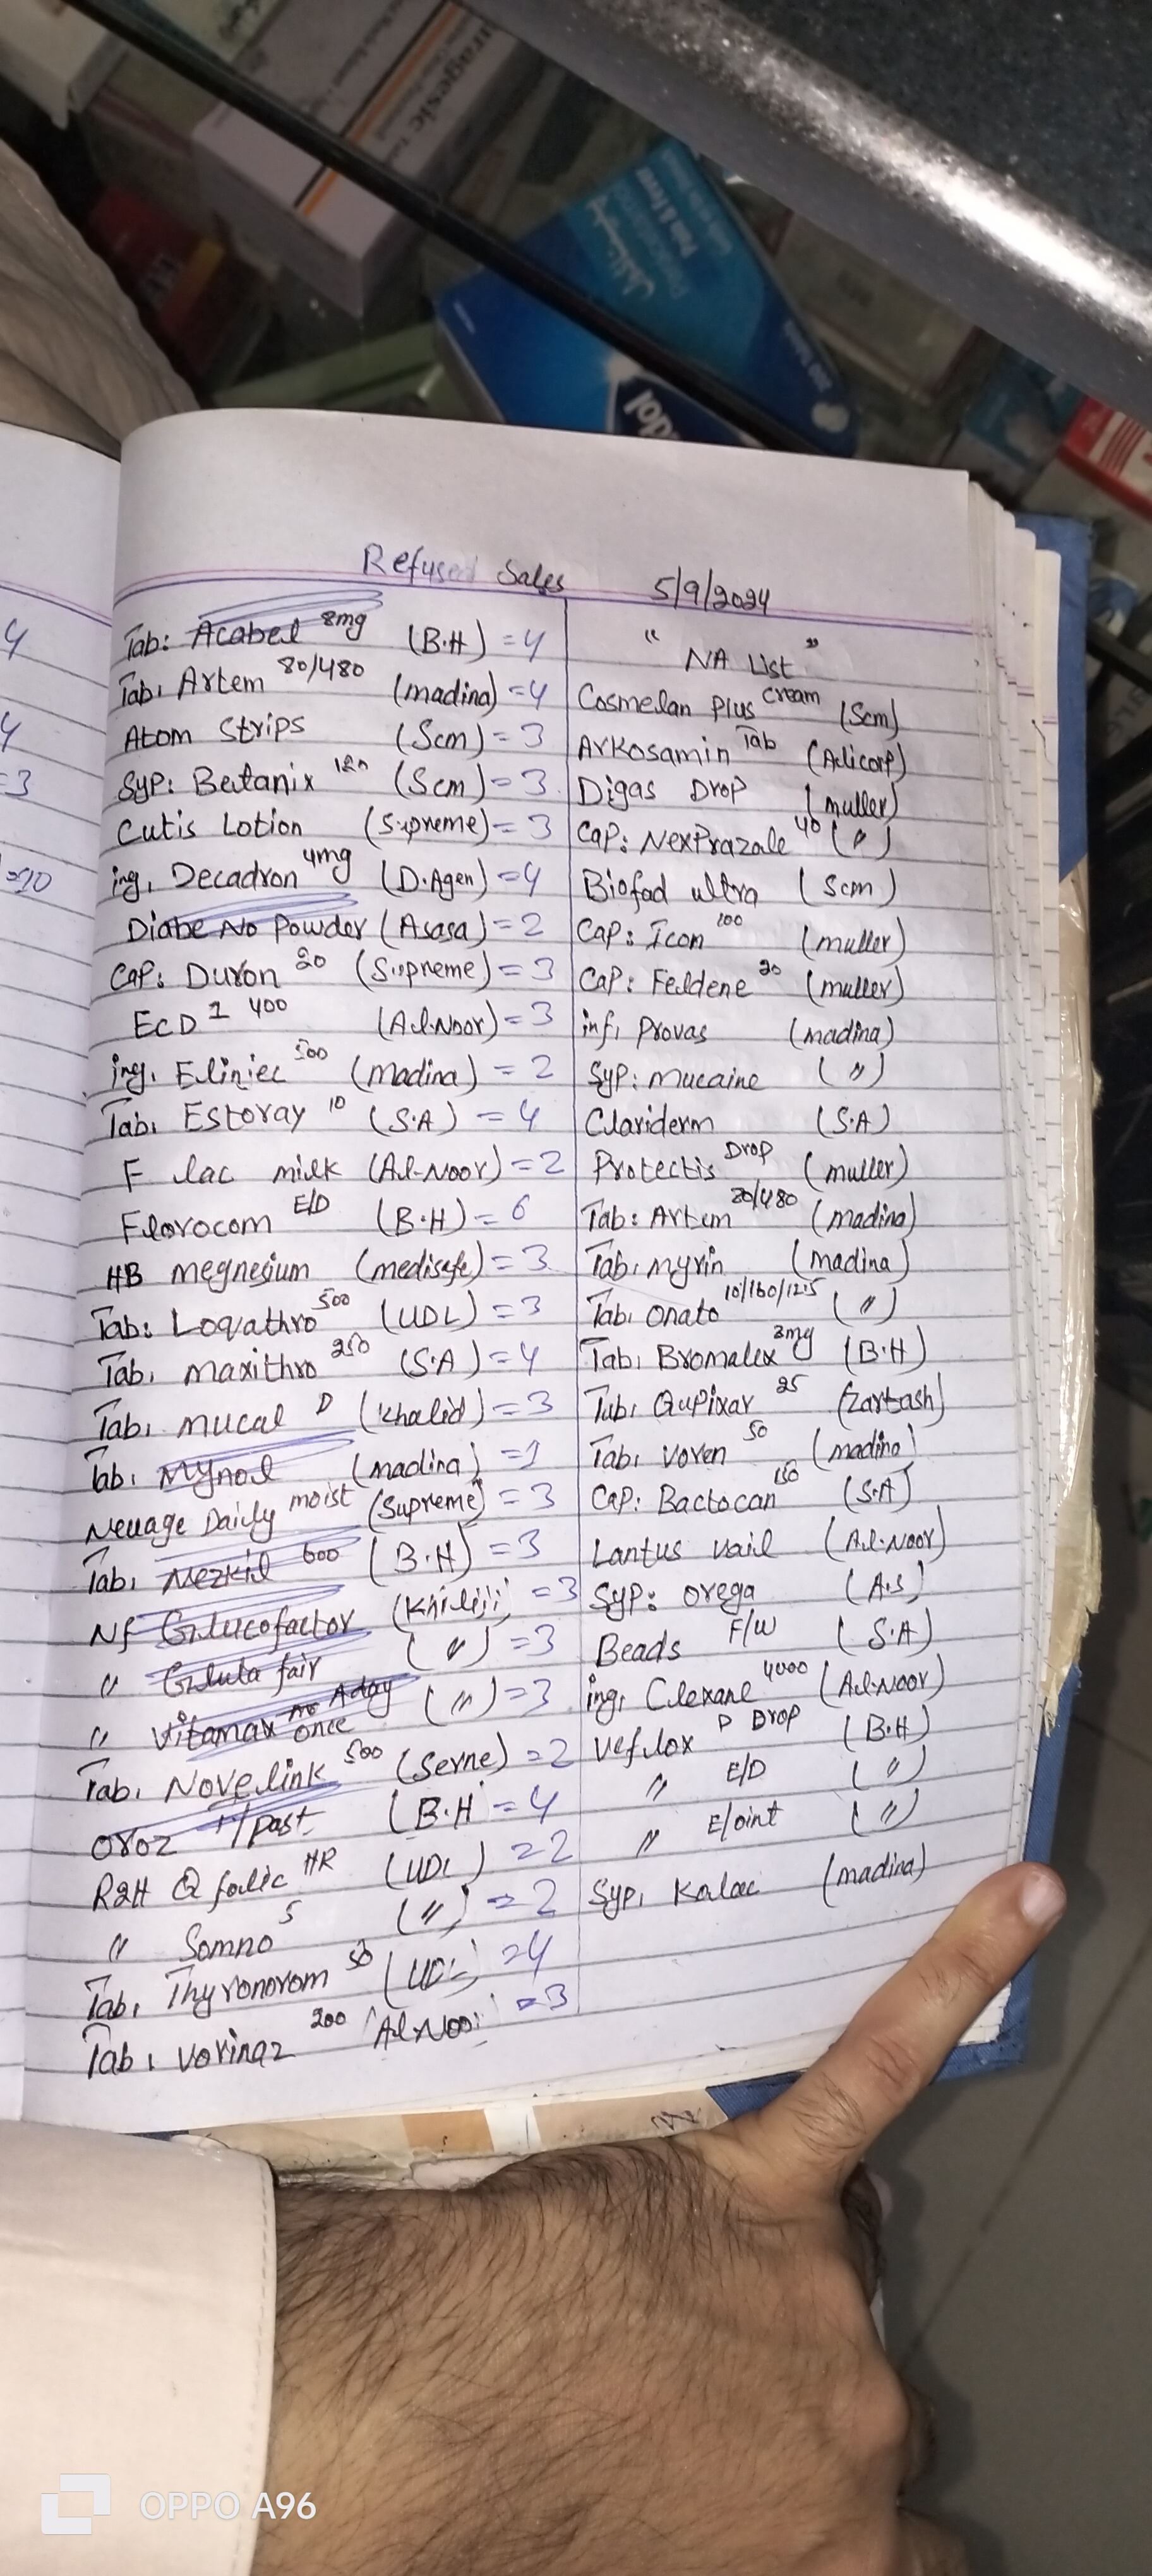 Refused Sales
5/9/2024
Tab: Acabel 8mg (B.H) = 4
Tab, Artem 80/480 (madina) = 4
Atom Strips (Scm) = 3
Syp: Betanix 120 (Scm) = 3
Cutis Lotion (Supreme) = 3
inj, Decadron 4mg (D.Agen) = 4
Diabe No Powder (Asasa) = 2
Cap: Duxon 20 (Supreme) = 3
EcD 1 400 (Al-Noor) = 3
inj, Eliniec 500 (madina) = 2
Tab, Estoray 10 (S.A) = 4
F lac milk (Al-Noor) = 2
Florocom E/D (B.H) = 6
HB megnesium (medisafe) = 3
Tab: Loqathro 500 (UDL) = 3
Tab, maxithro 250 (S.A) = 4
Tab, mucal D (Khalid) = 3
Tab, Mynol (madina) = 1
Neuage Daily moist (Supreme) = 3
Tab, Nezkil 600 (B.H) = 3
Nf Glucofactor (Khiliji) = 3
" Gluta fair (") = 3
" Vitamax once Aday (") = 3
Tab, Novelink 500 (Serne) = 2
Oroz T/past (B.H = 4
R2H Q folic HR (UDL) = 2
" Somno 5 (") = 2
Tab, Thyronorom 50 (UDL) = 4
Tab, Voringz 200 (Al-Noor = 3
" NA List "
Cosmelan Plus cream (Scm)
Arkosamin Tab (Adicorp)
Digas Drop (muller)
Cap: NexPrazole 40 (")
Biofad ultra (Scm)
Cap: Icon 100 (muller)
Cap: Feldene 20 (muller)
inf, Provas (madina)
Syp: mucaine (")
Clariderm (S.A)
Protectis Drop (muller)
Tab: Artem 80/480 (madina)
Tab, myrin (madina)
Tab, Onato 10/160/12.5 (")
Tab, Bromalex 3mg (B.H)
Tab, Qupixar 25 (Zartash)
Tab, Voren 50 (madina)
Cap: Bactocan 150 (S.A)
Lantus vail (Al-Noor)
Syp: orega (A.S)
Beads F/W (S.A)
inj, Clexane 4000 (Al-Noor)
Veflox D Drop (B.H)
" E/D (")
" E/oint (")
Syp, Kalac (madina)
4
4
=3
=10
OPPO A96